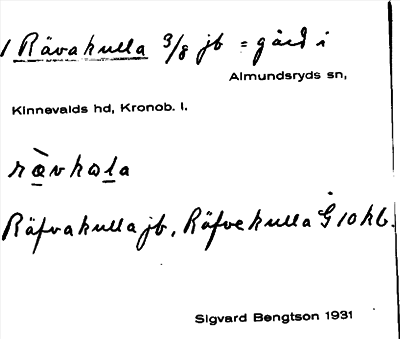 1 Rävakulla 3/8 jb = gård i
Almundsryds sn,
Kinnevalds hd, Kronob. l.
rævkɷla
Räfvakulla jb, Räfvekulla G 10 kb.
Sigvard Bengtson 1931